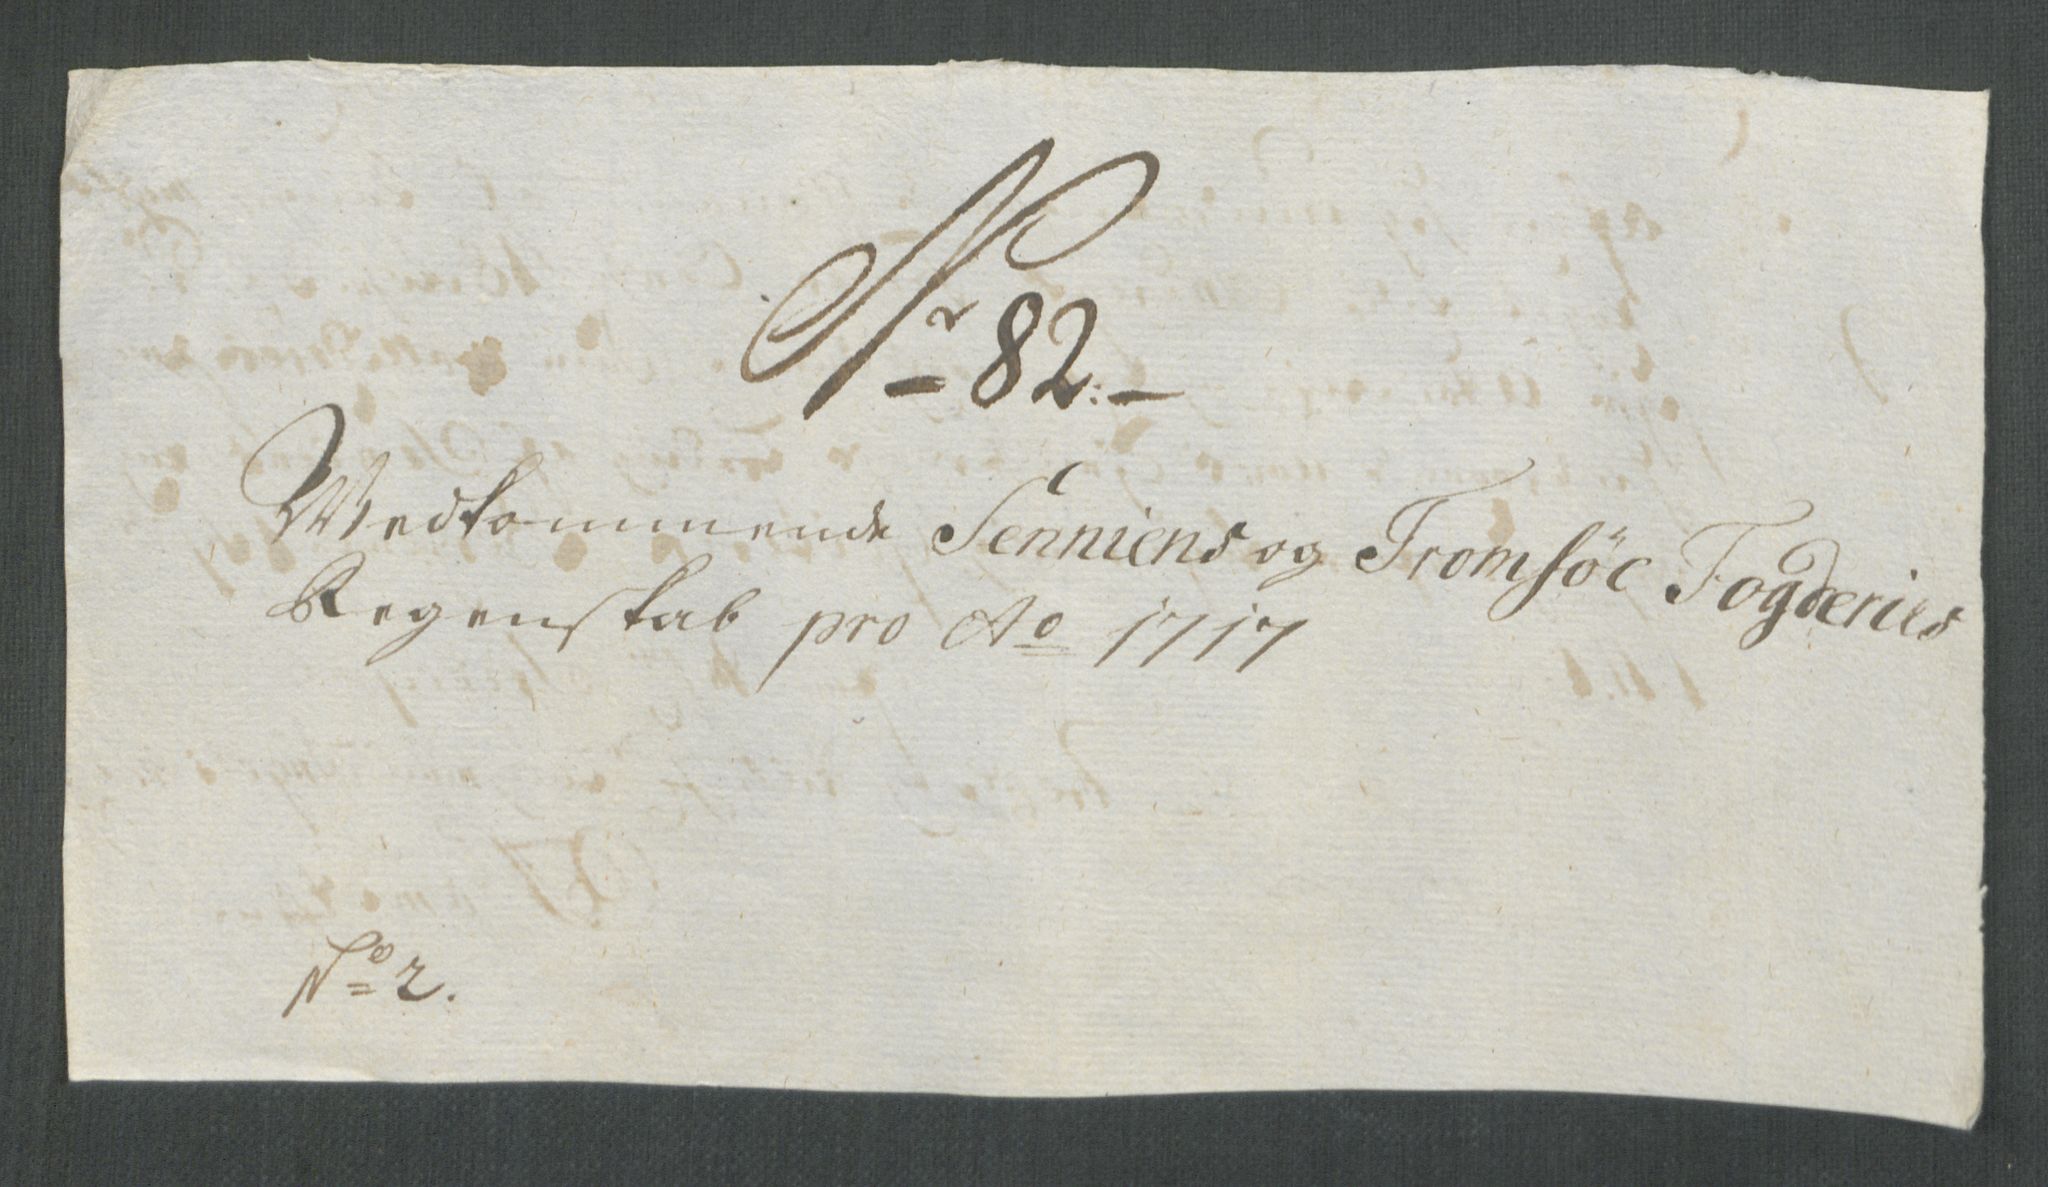 Nr 82:
Vedkommende Senniens og Tromsöe Fogderies
Regenskab pro Ao 1717
No 2.